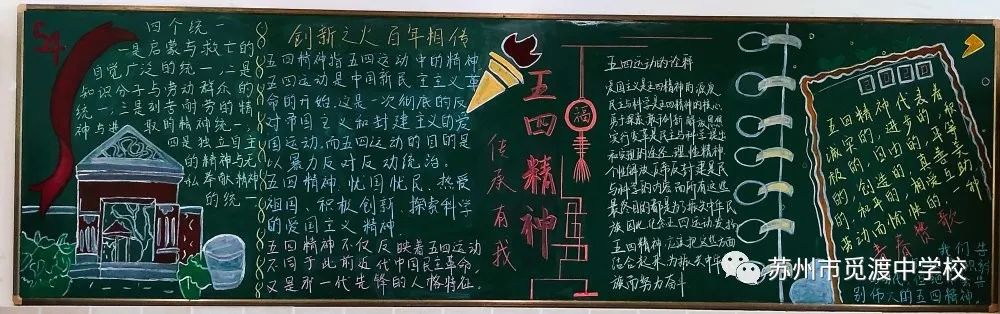 54
四个统一
一是启蒙与救亡的
自觉广泛的统一,二是
知识分子与劳动群众的
统一,三是刻苦耐劳的精
神与进取的精神统一,
四是独立自主
的精神与无
私奉献精神
的统一。
创新之火 百年相传
五四精神指五四运动中的精神,
五四运动是中国新民主主义革
命的开始,这是一次彻底的反
对帝国主义和封建主义的爱
国运动,而五四运动的目的是
以暴力反对反动统治。
五四精神,忧国忧民、热爱
祖国、积极创新、探索科学
的爱国主义精神。
五四精神不仅反映着五四运动
不同于此前近代中国民主革命,
又是那一代先锋的人格特征。
五四精神
传承有我
福
五四运动的诠释
爱国主义是五四精神的源泉
民主与科学是五四精神的核心
勇于探索敢于创新解放思想
实行变革是民主与科学提出
和实现的途径,理性精神
个性解放反帝反封建是民
与科学的内容而所有这些
最终目的都是为了振兴中华民
五四精神应该把这些方面
结合起来为振兴中华
族而努力奋斗
五四精神代表着
诚实的,进步的,积
极的,自由的,平等
的,创造的,美
的,和平的,相爱互助
的,劳动而愉快的,
青春赞歌
我们共
别伟人的五四精神。
苏州市觅渡中学校